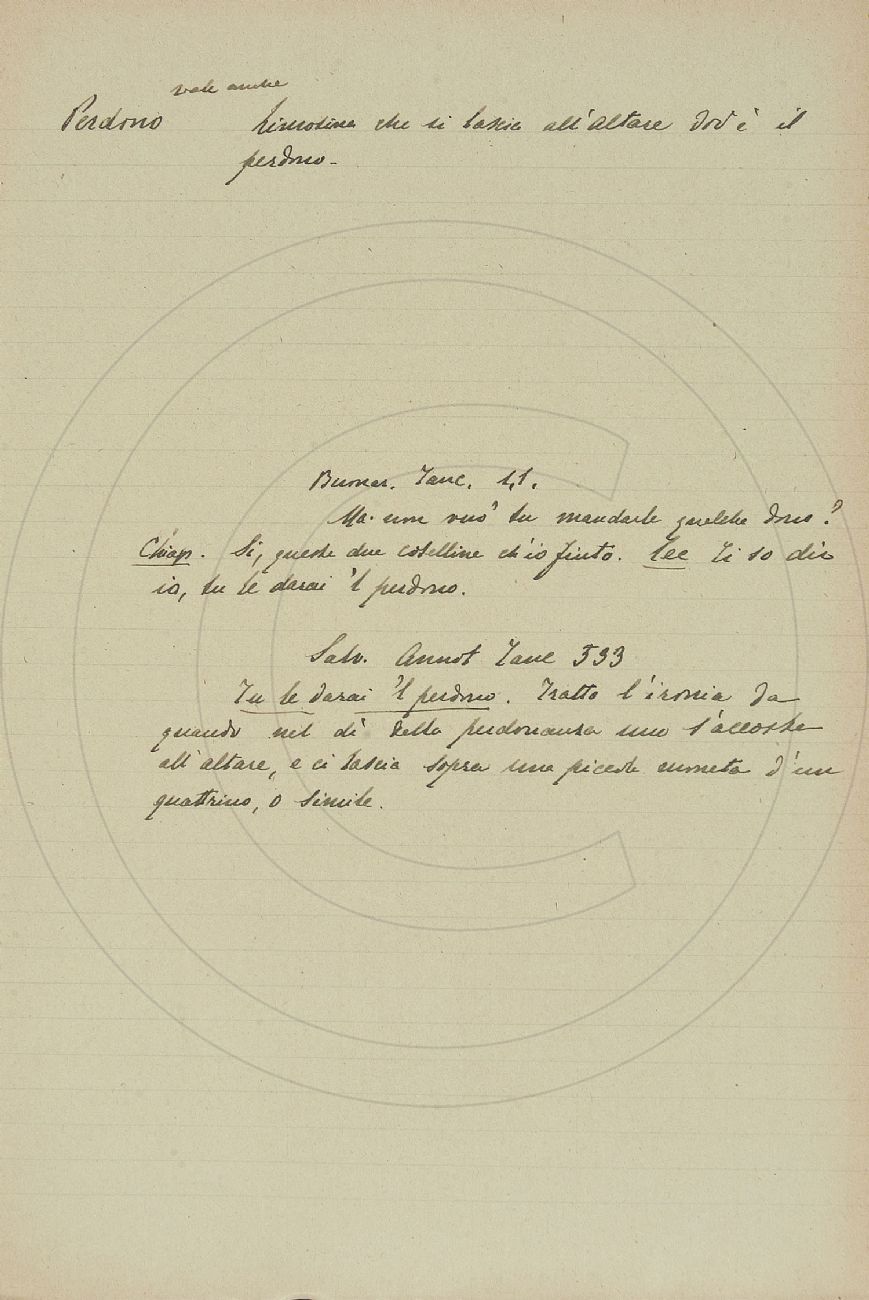 vale anche
Perdono Limosina che si lascia all'altare dov'è il
perdono.
Buonar. Tanc. 1,1.
Ma. non vuo' tu mandarle qualche dono?
Ciap. Sì, queste due coselline ch'io fiuto. Cec Ti so dir
io, tu le darai 'l perdono.
Salv. Annot Tanc 533
Tu le darai 'l perdono. Tratta l'ironia da
quando nel dì della perdonanza uno s'accosta
all'altare, e ci lascia sopra una piccola moneta d'un
quattrino, o simile.